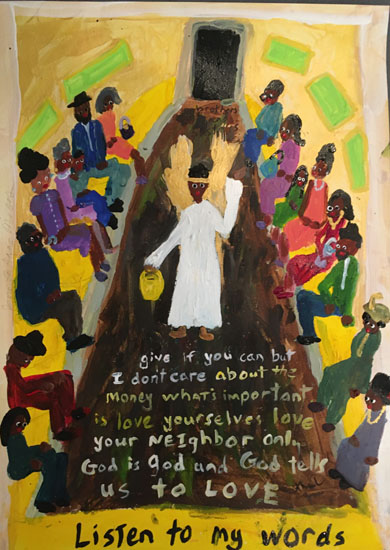 give if you can but
I dont care about the
money what's important
is love yourselves love
your NEIghbor only
God is god and God tells
us to LOVE
Listen to my words